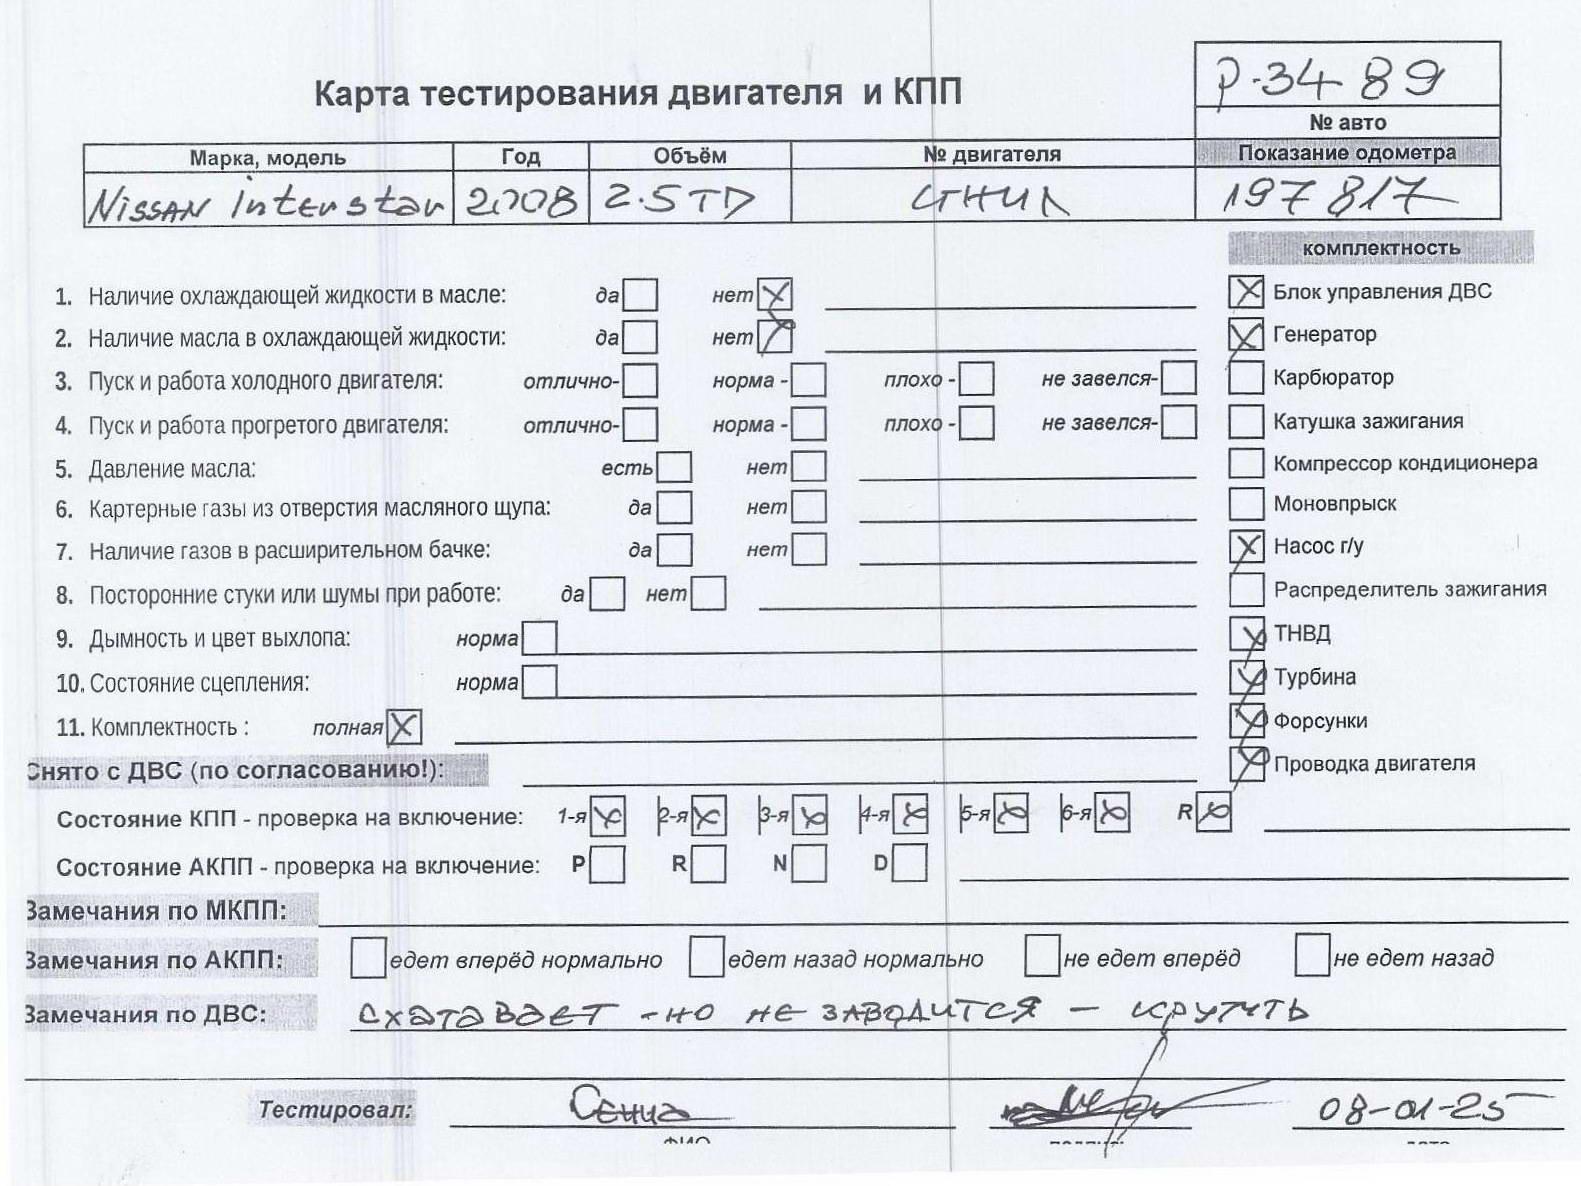 Р-3489
Карта тестирования двигателя и КПП
№ авто
Марка, модель Год Объём № двигателя Показание одометра
Nissan interstar 2008 2.5TD СГНИЛ 197 817
комплектность
1. Наличие охлаждающей жидкости в масле: да нет Блок управления ДВС
2. Наличие масла в охлаждающей жидкости: да нет Генератор
3. Пуск и работа холодного двигателя: отлично- норма - плохо - не завелся- Карбюратор
4. Пуск и работа прогретого двигателя: отлично- норма - плохо - не завелся- Катушка зажигания
5. Давление масла: есть нет Компрессор кондиционера
6. Картерные газы из отверстия масляного щупа: да нет Моновпрыск
7. Наличие газов в расширительном бачке: да нет Насос г/у
8. Посторонние стуки или шумы при работе: да нет Распределитель зажигания
9. Дымность и цвет выхлопа: норма ТНВД
10. Состояние сцепления: норма Турбина
11. Комплектность : полная Форсунки
Снято с ДВС (по согласованию!): Проводка двигателя
Состояние КПП - проверка на включение: 1-я 2-я 3-я 4-я 5-я 6-я R
Состояние АКПП - проверка на включение: P R N D
Замечания по МКПП:
Замечания по АКПП: едет вперёд нормально едет назад нормально не едет вперёд не едет назад
Замечания по ДВС: схатавает -но не заводится - крутить
Тестировал: Сениа 08-01-25
ФИО